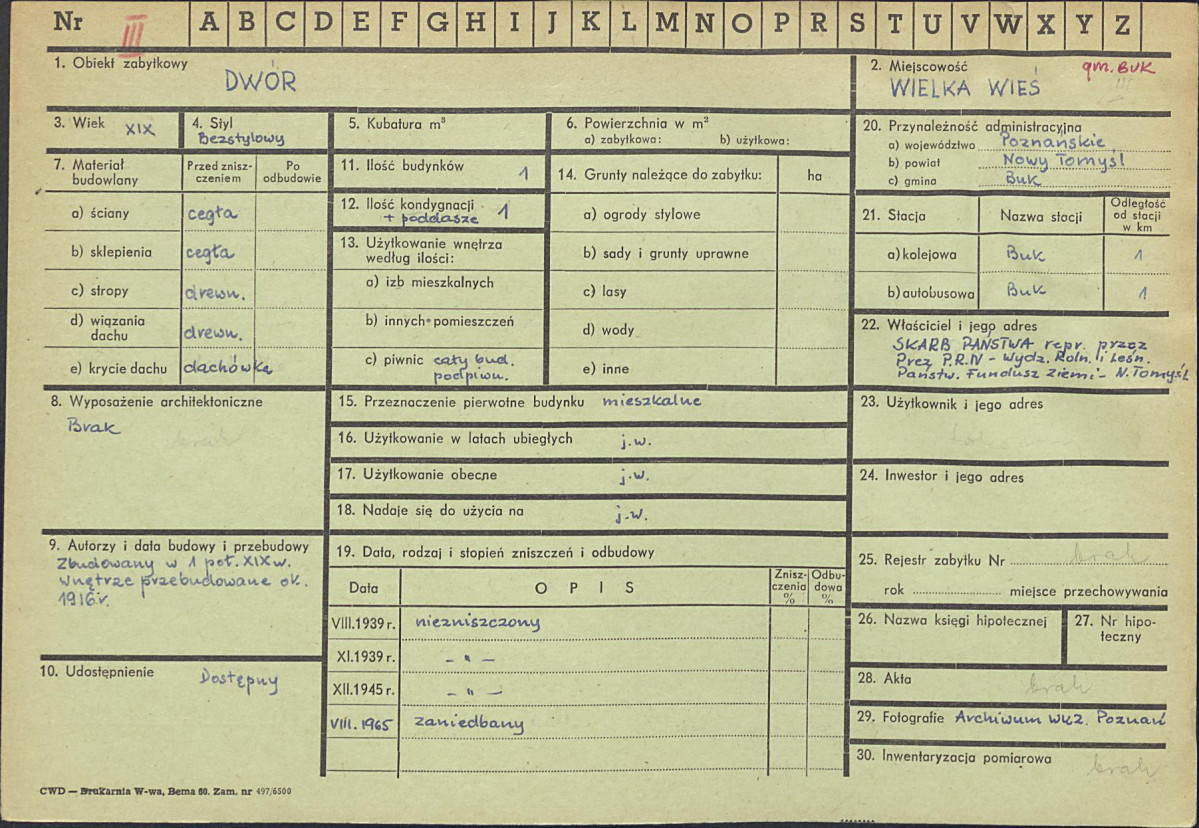 Nr III A B C D E F G H I J K L M N O P R S T U V W X Y Z
1. Obiekt zabytkowy
DWÓR
2. Miejscowość gm. BUK
WIELKA WIEŚ
III
3. Wiek XIX
4. Styl
Bezstylowy
5. Kubatura m³
6. Powierzchnia w m²
a) zabytkowa: b) użytkowa:
7. Materiał budowlany
Przed znisz-
czeniem
Po
odbudowie
a) ściany cegła
b) sklepienia cegła
c) stropy drewn.
d) wiązania
dachu drewn.
e) krycie dachu dachówka
8. Wyposażenie architektoniczne
Brak
brak
9. Autorzy i data budowy i przebudowy
Zbudowany w 1 poł. XIX w.
wnętrze przebudowane ok.
1916 r.
10. Udostępnienie Dostępny
11. Ilość budynków 1
12. Ilość kondygnacji 1
+ poddasze
13. Użytkowanie wnętrza
według ilości:
a) izb mieszkalnych
b) innych pomieszczeń
c) piwnic cały bud.
podpiwn.
14. Grunty należące do zabytku: ha
a) ogrody stylowe
b) sady i grunty uprawne
c) lasy
d) wody
e) inne
15. Przeznaczenie pierwotne budynku mieszkalne
16. Użytkowanie w latach ubiegłych j.w.
17. Użytkowanie obecne j.w.
18. Nadaje się do użycia na j.w.
19. Data, rodzaj i stopień zniszczeń i odbudowy
Data
OPIS
Znisz-
czenia
%
Odbu-
dowa
%
VIII.1939 r. niezniszczony
XI.1939 r. – " –
XII.1945 r. – " –
VIII. 1965 zaniedbany
20. Przynależność administracyjna
a) województwo Poznańskie
b) powiat Nowy Tomyśl
c) gmina Buk
21. Stacja
Nazwa stacji
Odległość
od stacji
w km
a) kolejowa Buk 1
b) autobusowa Buk 1
22. Właściciel i jego adres
SKARB PAŃSTWA repr. przez
Prez. P.R.N – Wydz. Roln. i Leśn.
Państw. Fundusz Ziemi – N. Tomyśl
23. Użytkownik i jego adres
24. Inwestor i jego adres
25. Rejestr zabytku Nr brak
rok miejsce przechowywania
26. Nazwa księgi hipotecznej
27. Nr hipo-
teczny
28. Akta brak
29. Fotografie Archiwum WKZ. Poznań
30. Inwentaryzacja pomiarowa
brak
CWD — Drukarnia W-wa, Bema 60. Zam. nr 497/6500